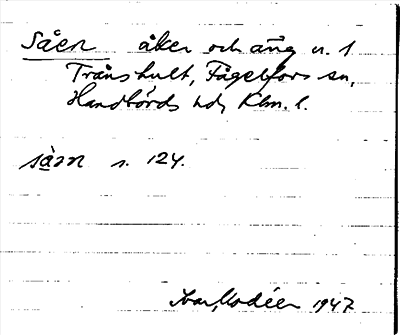 Såen åker och äng n. 1
Trånshult, Fågelfors sn,
Handbörds hd, Klm. l.
såɪn s. 124.
Ivar Modéer 1947